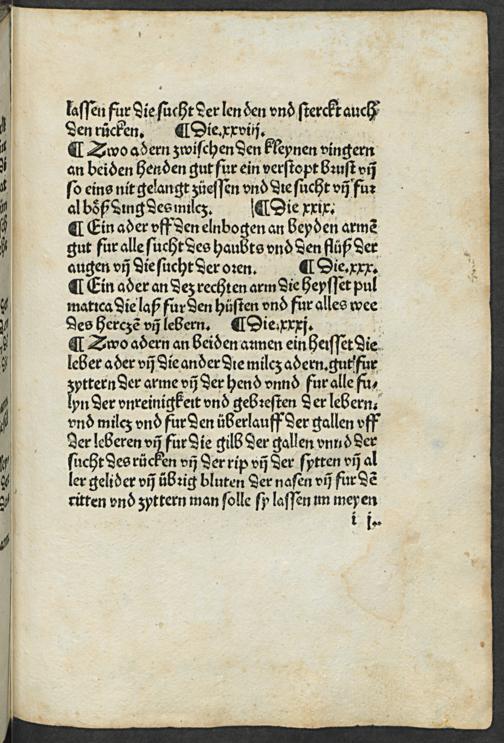 lassen fur die sucht der len den vnd sterckt auch
den rücken. ¶ Die.xxviij.
¶ Zwo adern zwischen den kleynen vingern
an beiden henden gut fur ein verstopt brust vn̄
so eins nit gelangt züessen vnd die sucht vn̄ fur
al böß ding des milcz. ¶ Die xxix.
¶ Ein ader vff den elnbogen an beyden armē
gut fur alle sucht des haubts vnd den flüß der
augen vn̄ die sucht der oren. ¶ Die.xxx.
¶ Ein ader an dez rechten arm die heysset pul
matica die laß fur den hüsten vnd fur alles wee
des herczē vn̄ lebern. ¶ Die.xxxj.
¶ Zwo adern an beiden armen ein heisset die
leber ader vn̄ die ander die milcz adern.gut fur
zyttern der arme vn̄ der hend vnnd fur alle fu⸗
lyn der vnreinigkeit vnd gebresten der lebern.
vnd milcz vnd fur den überlauff der gallen vff
der leberen vn̄ fur die gilb der gallen vnnd der
sucht des rücken vn̄ der rip vn̄ der sytten vn̄ al
ler gelider vn̄ übrig bluten der nasen vn̄ fur dē
ritten vnd zyttern man solle sy lassen im meyen
i j.